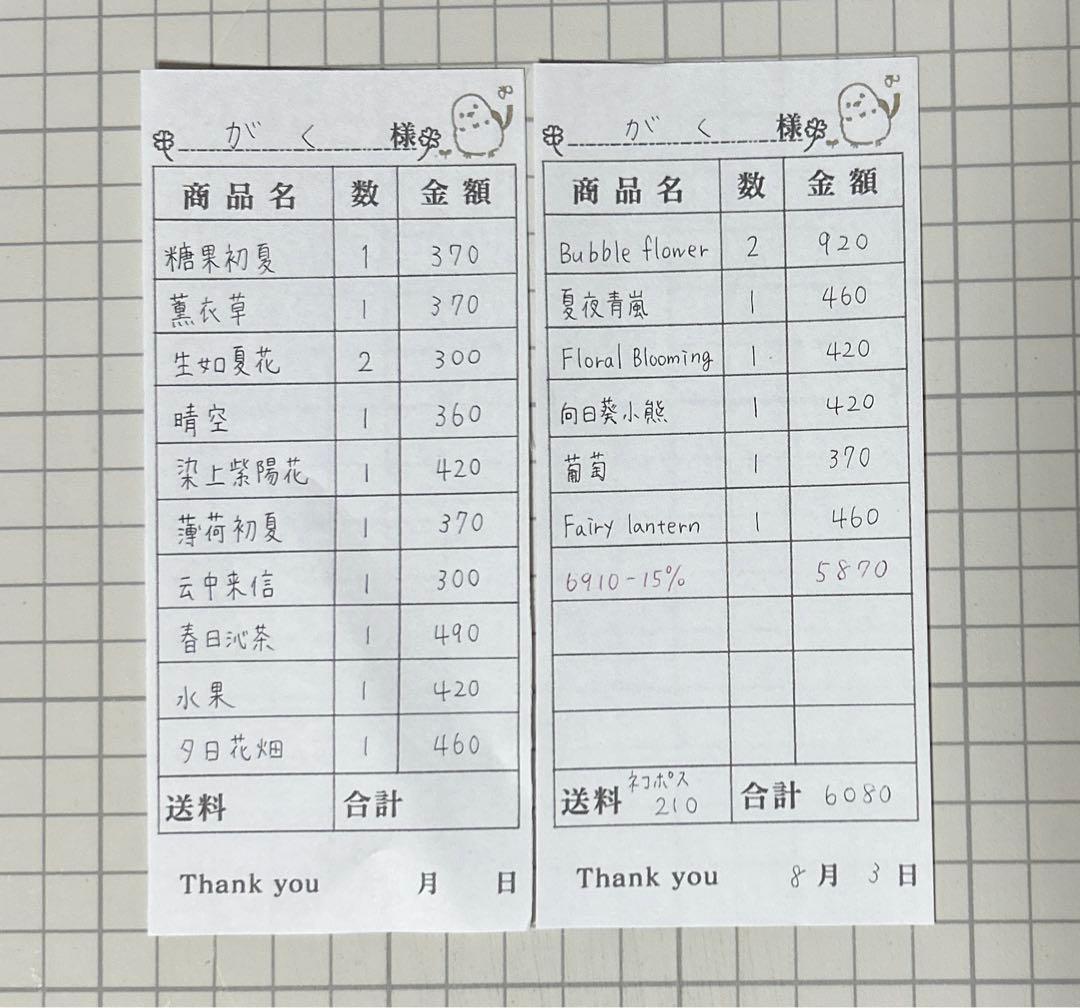 がく 様
商品名 数 金額
糖果初夏 1 370
薫衣草 1 370
生如夏花 2 300
晴空 1 360
染上紫陽花 1 420
薄荷初夏 1 370
云中来信 1 300
春日沁茶 1 490
水果 1 420
夕日花畑 1 460
送料 合計
Thank you 月 日
がく 様
商品名 数 金額
Bubble flower 2 920
夏夜青嵐 1 460
Floral Blooming 1 420
向日葵小熊 1 420
葡萄 1 370
Fairy lantern 1 460
6910-15% 5870
送料 ネコポス 210 合計 6080
Thank you 8月 3日